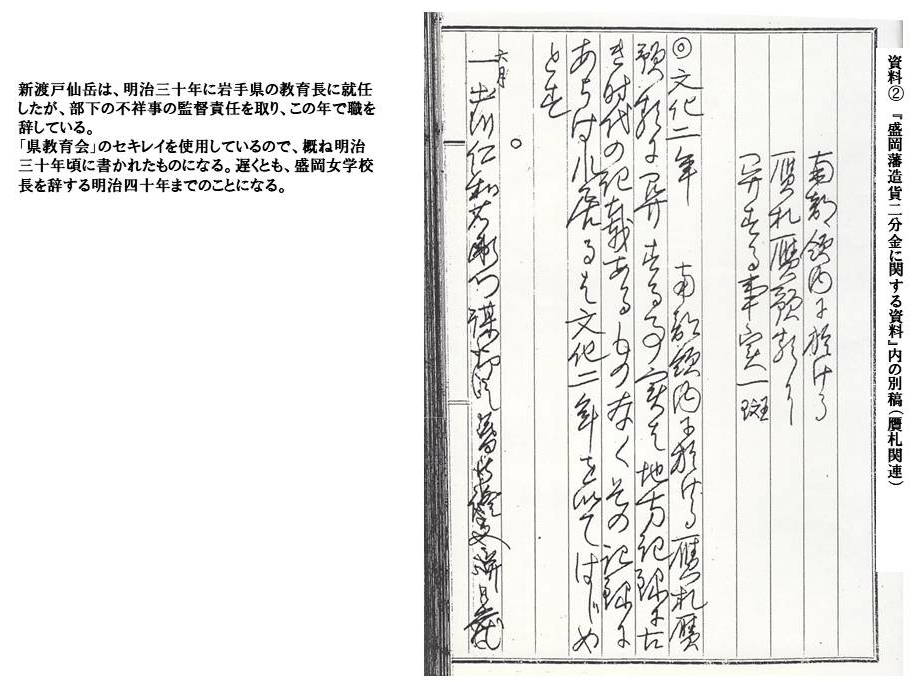 資料② 『盛岡藩造貨二分金に関する資料』内の別稿(贋札関連)
南部領内に於ける
贋札贋預類に
関する事実一斑
◎文化二年 南部領内に於ける贋札贋
預類に関する事実は地方記録に古
き時代の記載あるものなくその記録に
あらはれ居るは文化二年を以てはじめ
とす
六月
一
仁和
新渡戸仙岳は、明治三十年に岩手県の教育長に就任
したが、部下の不祥事の監督責任を取り、この年で職を
辞している。
「県教育会」のセキレイを使用しているので、概ね明治
三十年頃に書かれたものになる。遅くとも、盛岡女学校
長を辞する明治四十年までのことになる。